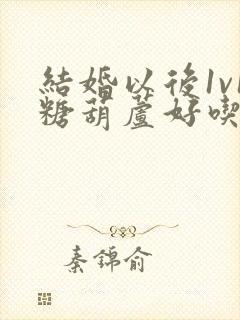 結婚以後1v1
糖葫蘆好喫
秦錦俞